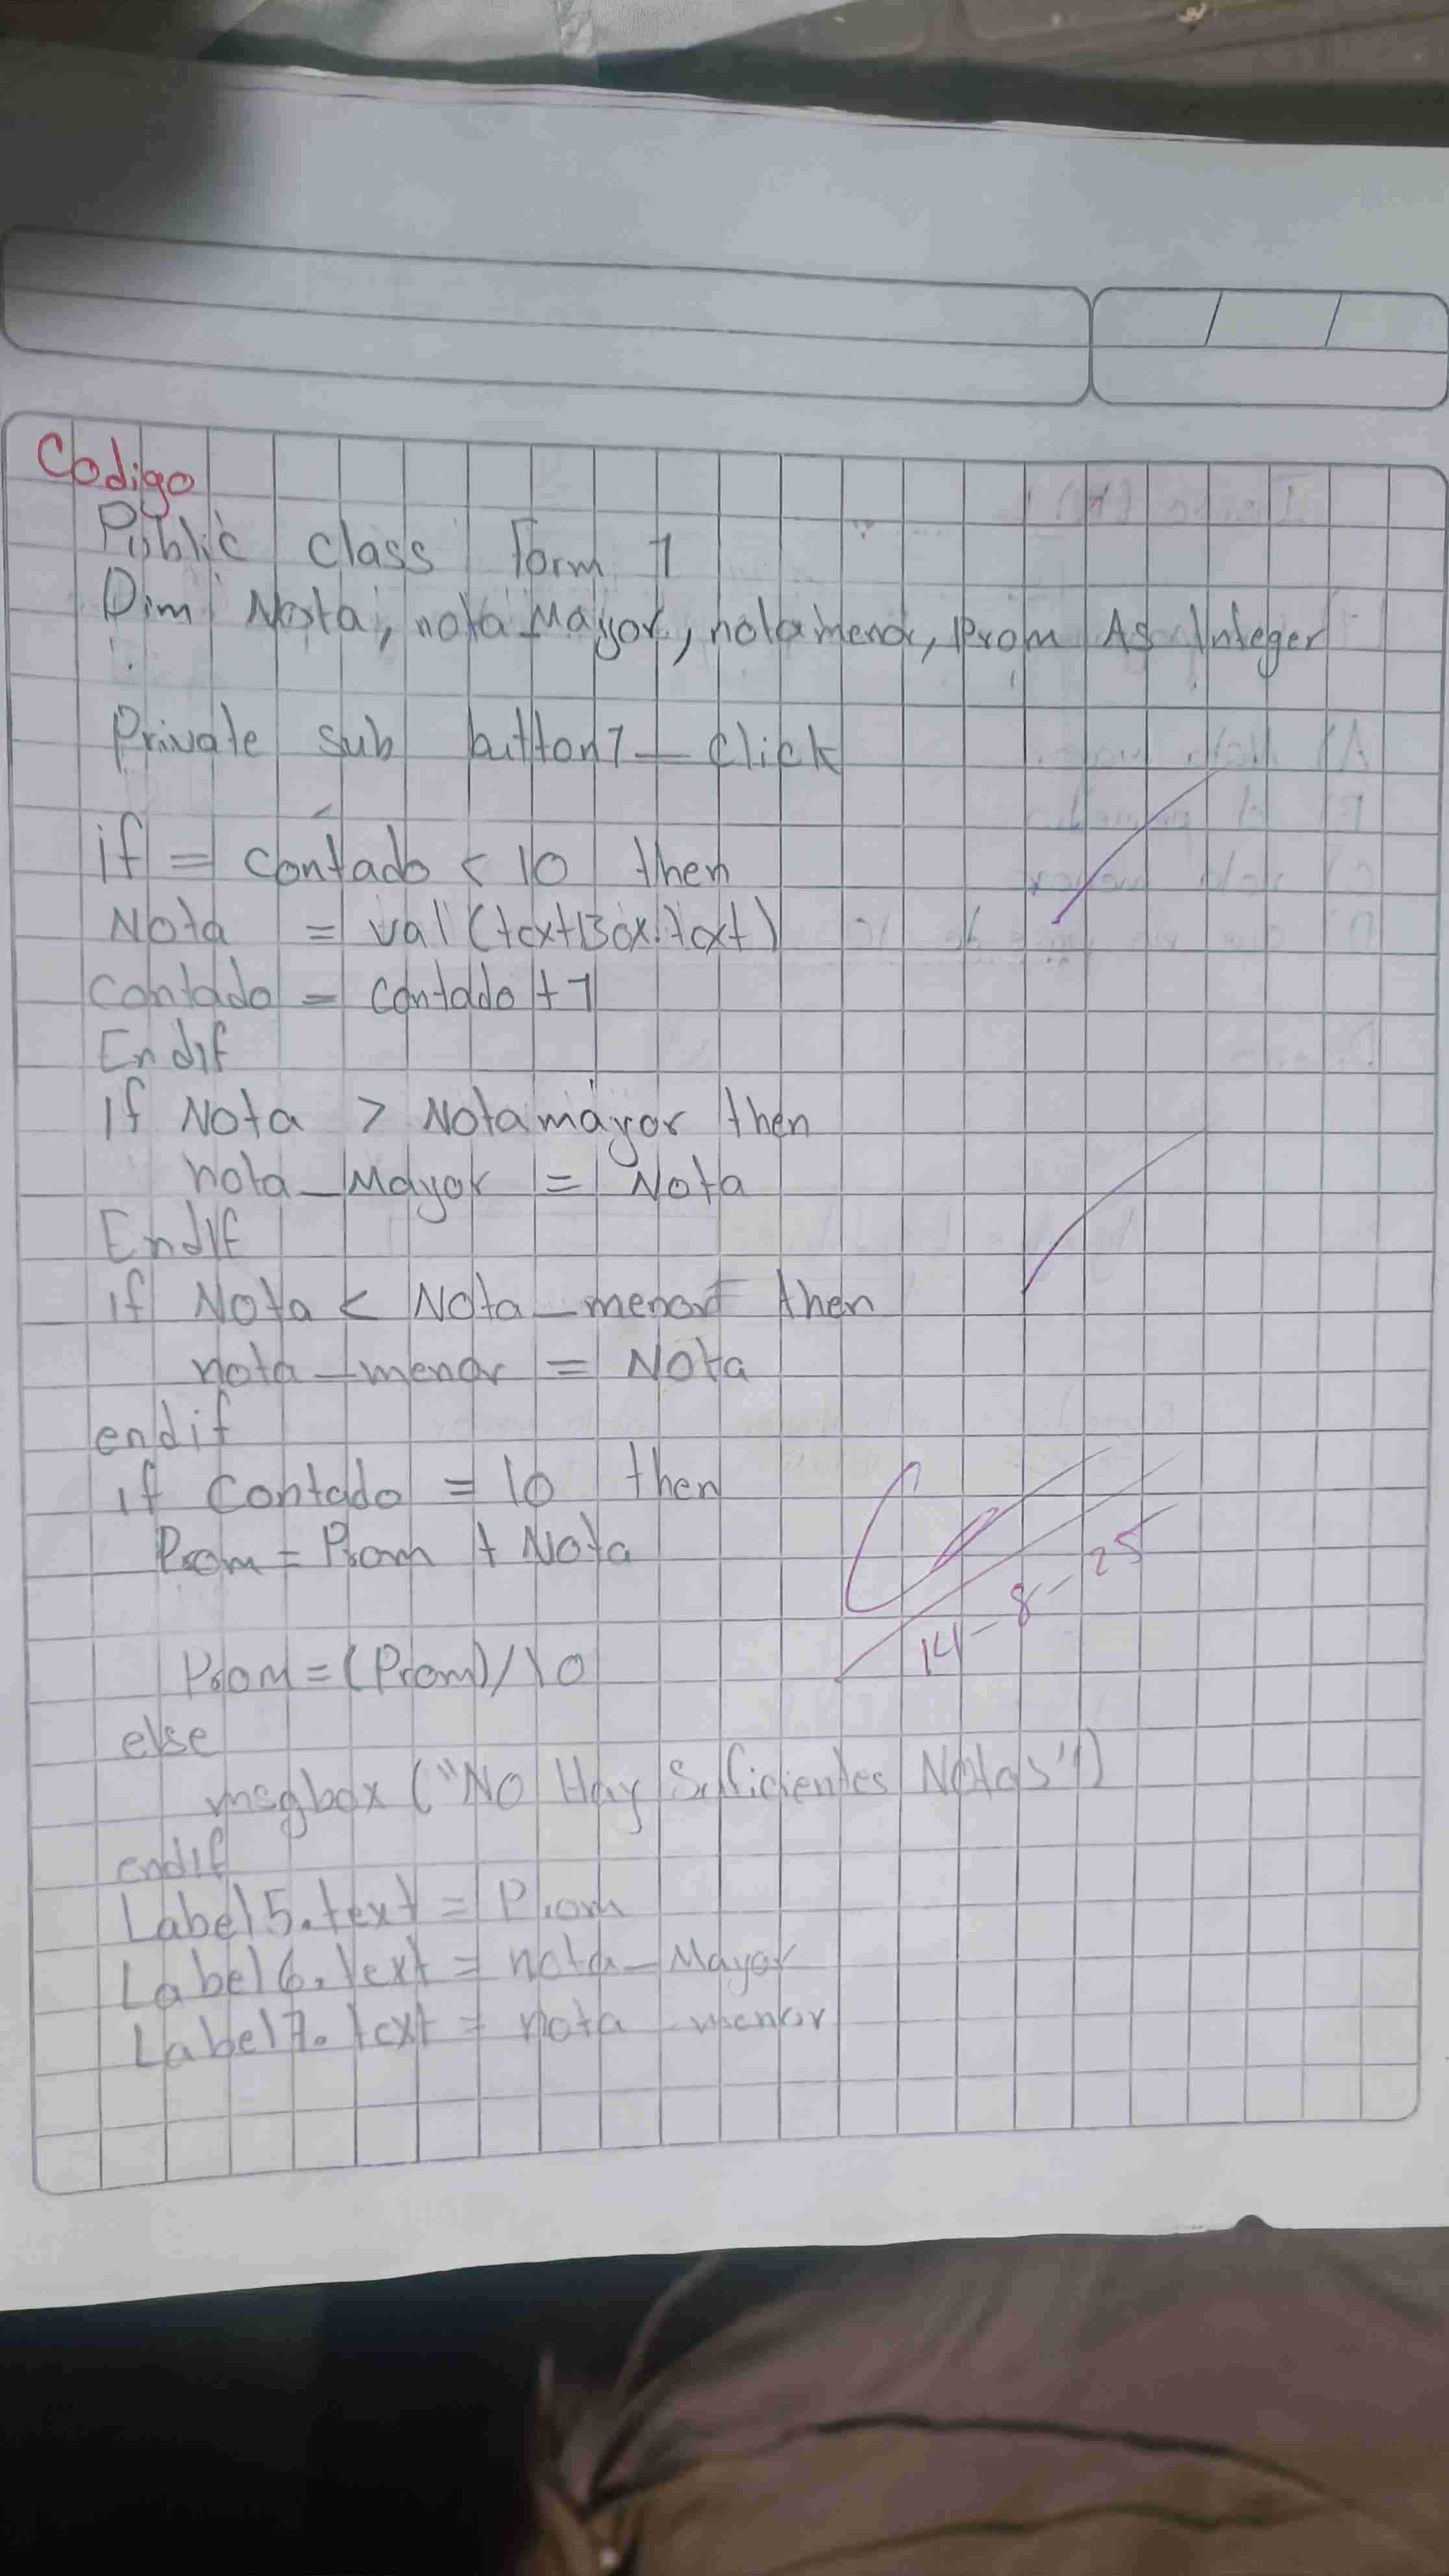 Codigo
Public class Form 1
Dim Nota, nota_Mayor, nota menor, Prom As Integer
Private sub button1_Click
if = Contado < 10 then
Nota = val (textBox.text)
Contado = Contado + 1
Endif
If Nota > Nota mayor then
nota_Mayor = Nota
Endif
if Nota < Nota_menor then
nota_menor = Nota
endif
if Contado = 10 then
Prom = Prom + Nota
14-8-25
Prom = (Prom)/10
else
msgbox ("No Hay Suficientes Notas")
endif
Label5.text = Prom
Label6.text = nota_Mayor
Label7.text = nota_menor